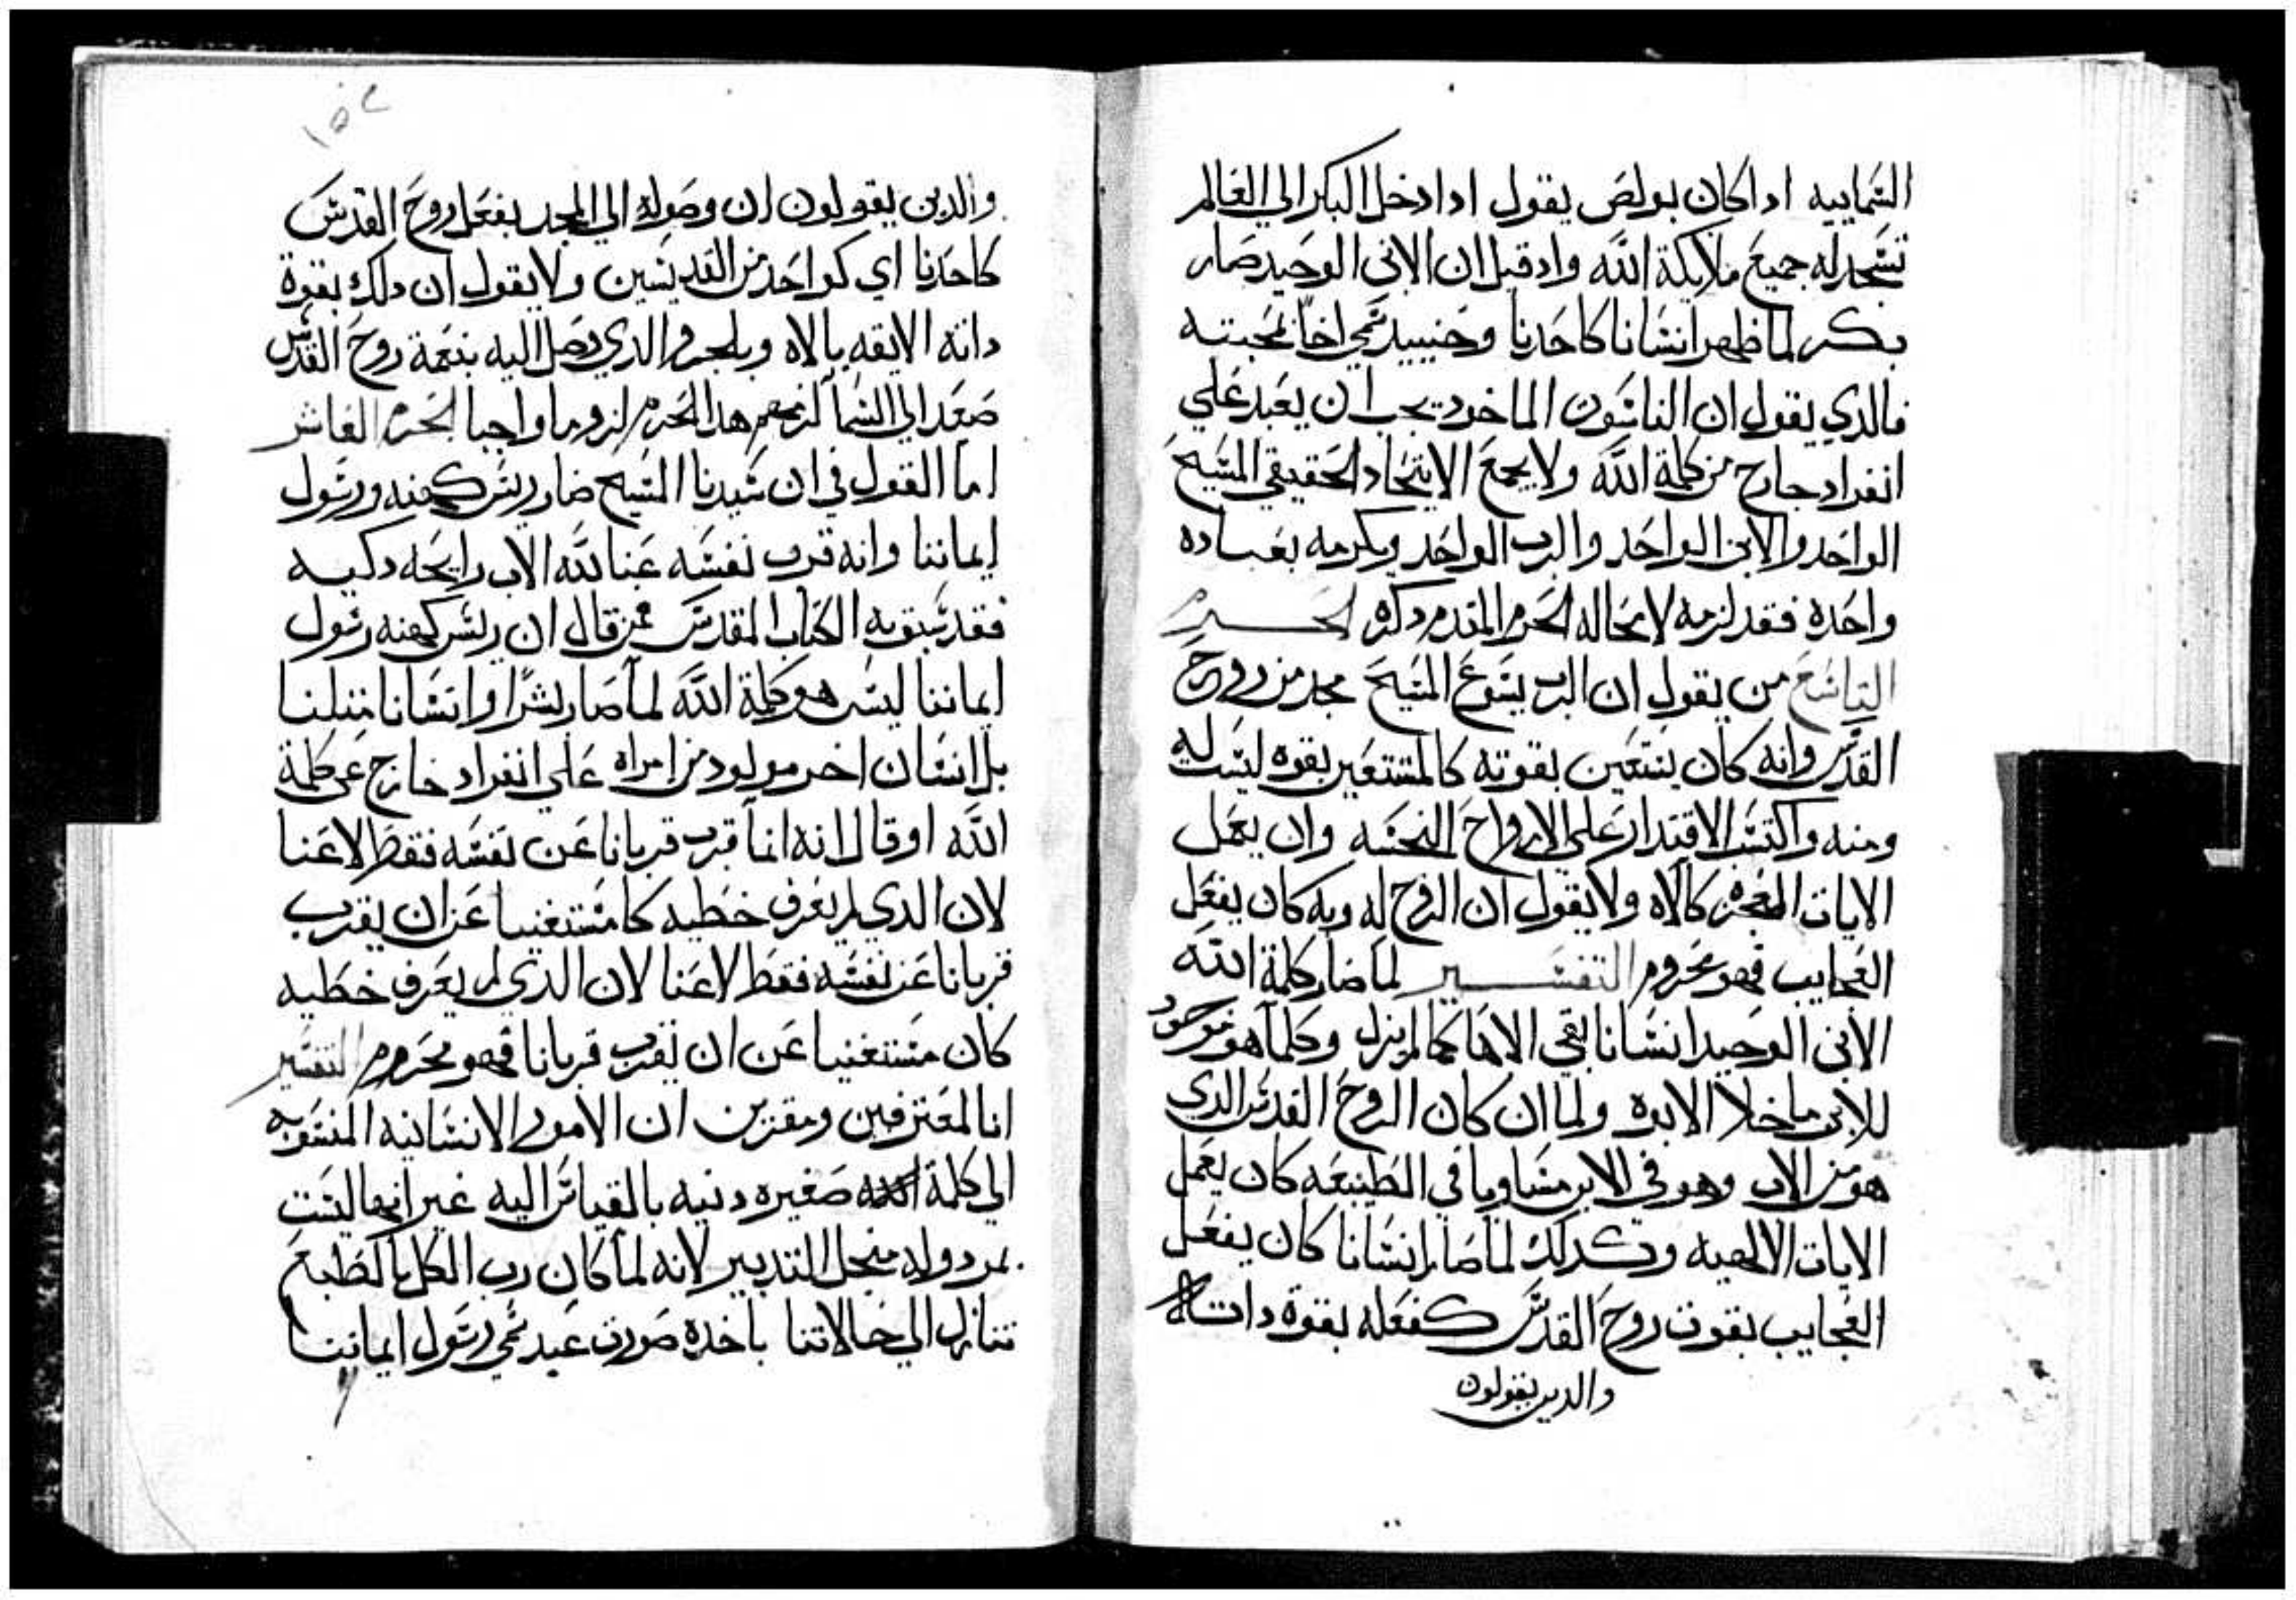 السمايية ادا كان بولص يقول ادا دخل البكر الي العالم
تسجد له جميع ملايكة الله واد قيل ان الابن الوحيد صار
بكر لما ظهر انسانا كاحدنا وحنييد سمي اخا لمحبته
فالدي يقول ان الناسوت الماخود يجب ان يعبد علي
انفراد خارج من كلمة الله ولا يجمع الاتحاد الحقيقي المسيح
الواحد والابن الواحد والرب الواحد ويكرمه بعباده
واحده فقد لزمه لا محاله الحرم المقدم دكره الحرم
التاسع من يقول ان الرب يسوع المسيح مجد من روح
القدس وانه كان يستعين بقوته كالمستعين بقوه ليست له
ومنه واكتسب الاقتدار علي الارواح النجسه وان يعمل
الايات المعجزه كالاه ولا يقول ان الروح له وبه كان يفعل
العجايب فهو محروم التفسير لما صار كلمة الله
الابن الوحيد انسانا بقي الاها كما لم يزل وكلما هو موجود
للابن ما خلا الابوه ولما ان كان الروح القدس الدي
هو من الاب وهو في الابن مساويا في الطبيعه كان يعمل
الايات الالهيه وكدلك لما صار انسانا كان يفعل
العجايب بقوت روح القدس كفعله بقوة داته
والدين يقولون
١٥٢
والدين يقولون ان وصوله الي المجد بفعل روح القدس
كاحدنا اي كواحد من القديسين ولا يقول ان دلك بقوة
داته الايقه بالاه وبلجرم الدي وصل اليه بنعمة روح القدس
صعد الي السما لزمهم هدا الحرم لزوما واجبا الحرم العاشر
اما القول في ان سيدنا المسيح صار ريس كهنه ورسول
ايماننا وانه قرب نفسه عنا لله الاب رايحه دكيه
فقد سبق به الكتاب المقدس فمن قال ان ريس كهنه رسول
ايماننا ليس هو كلمة الله لما صار بشرا وانسانا مثلنا
بل انسان اخر مولود من امراه علي انفراد خارج عن كلمة
الله او قال انه انما قرب قربانا عن نفسه فقط لا عنا
لان الدي لم يعرف خطيه كا مستغنيا عن ان يقرب
قربانا عن نفسه فقط لا عنا لان الدي لم يعرف خطيه
كان مستغنيا عن ان يقرب قربانا فهو محروم التفسير
انا لمعترفين ومقرين ان الامور الانسانيه المنسوبه
الي كلمة الله صغيره دنيه بالقياس اليه غير انها ليست
بمردوله من اجل التدبير لانه لما كان رب الكل بالطبع
تنازل الي حالاتنا باخده صورت عبد سمي رسول ايماننا